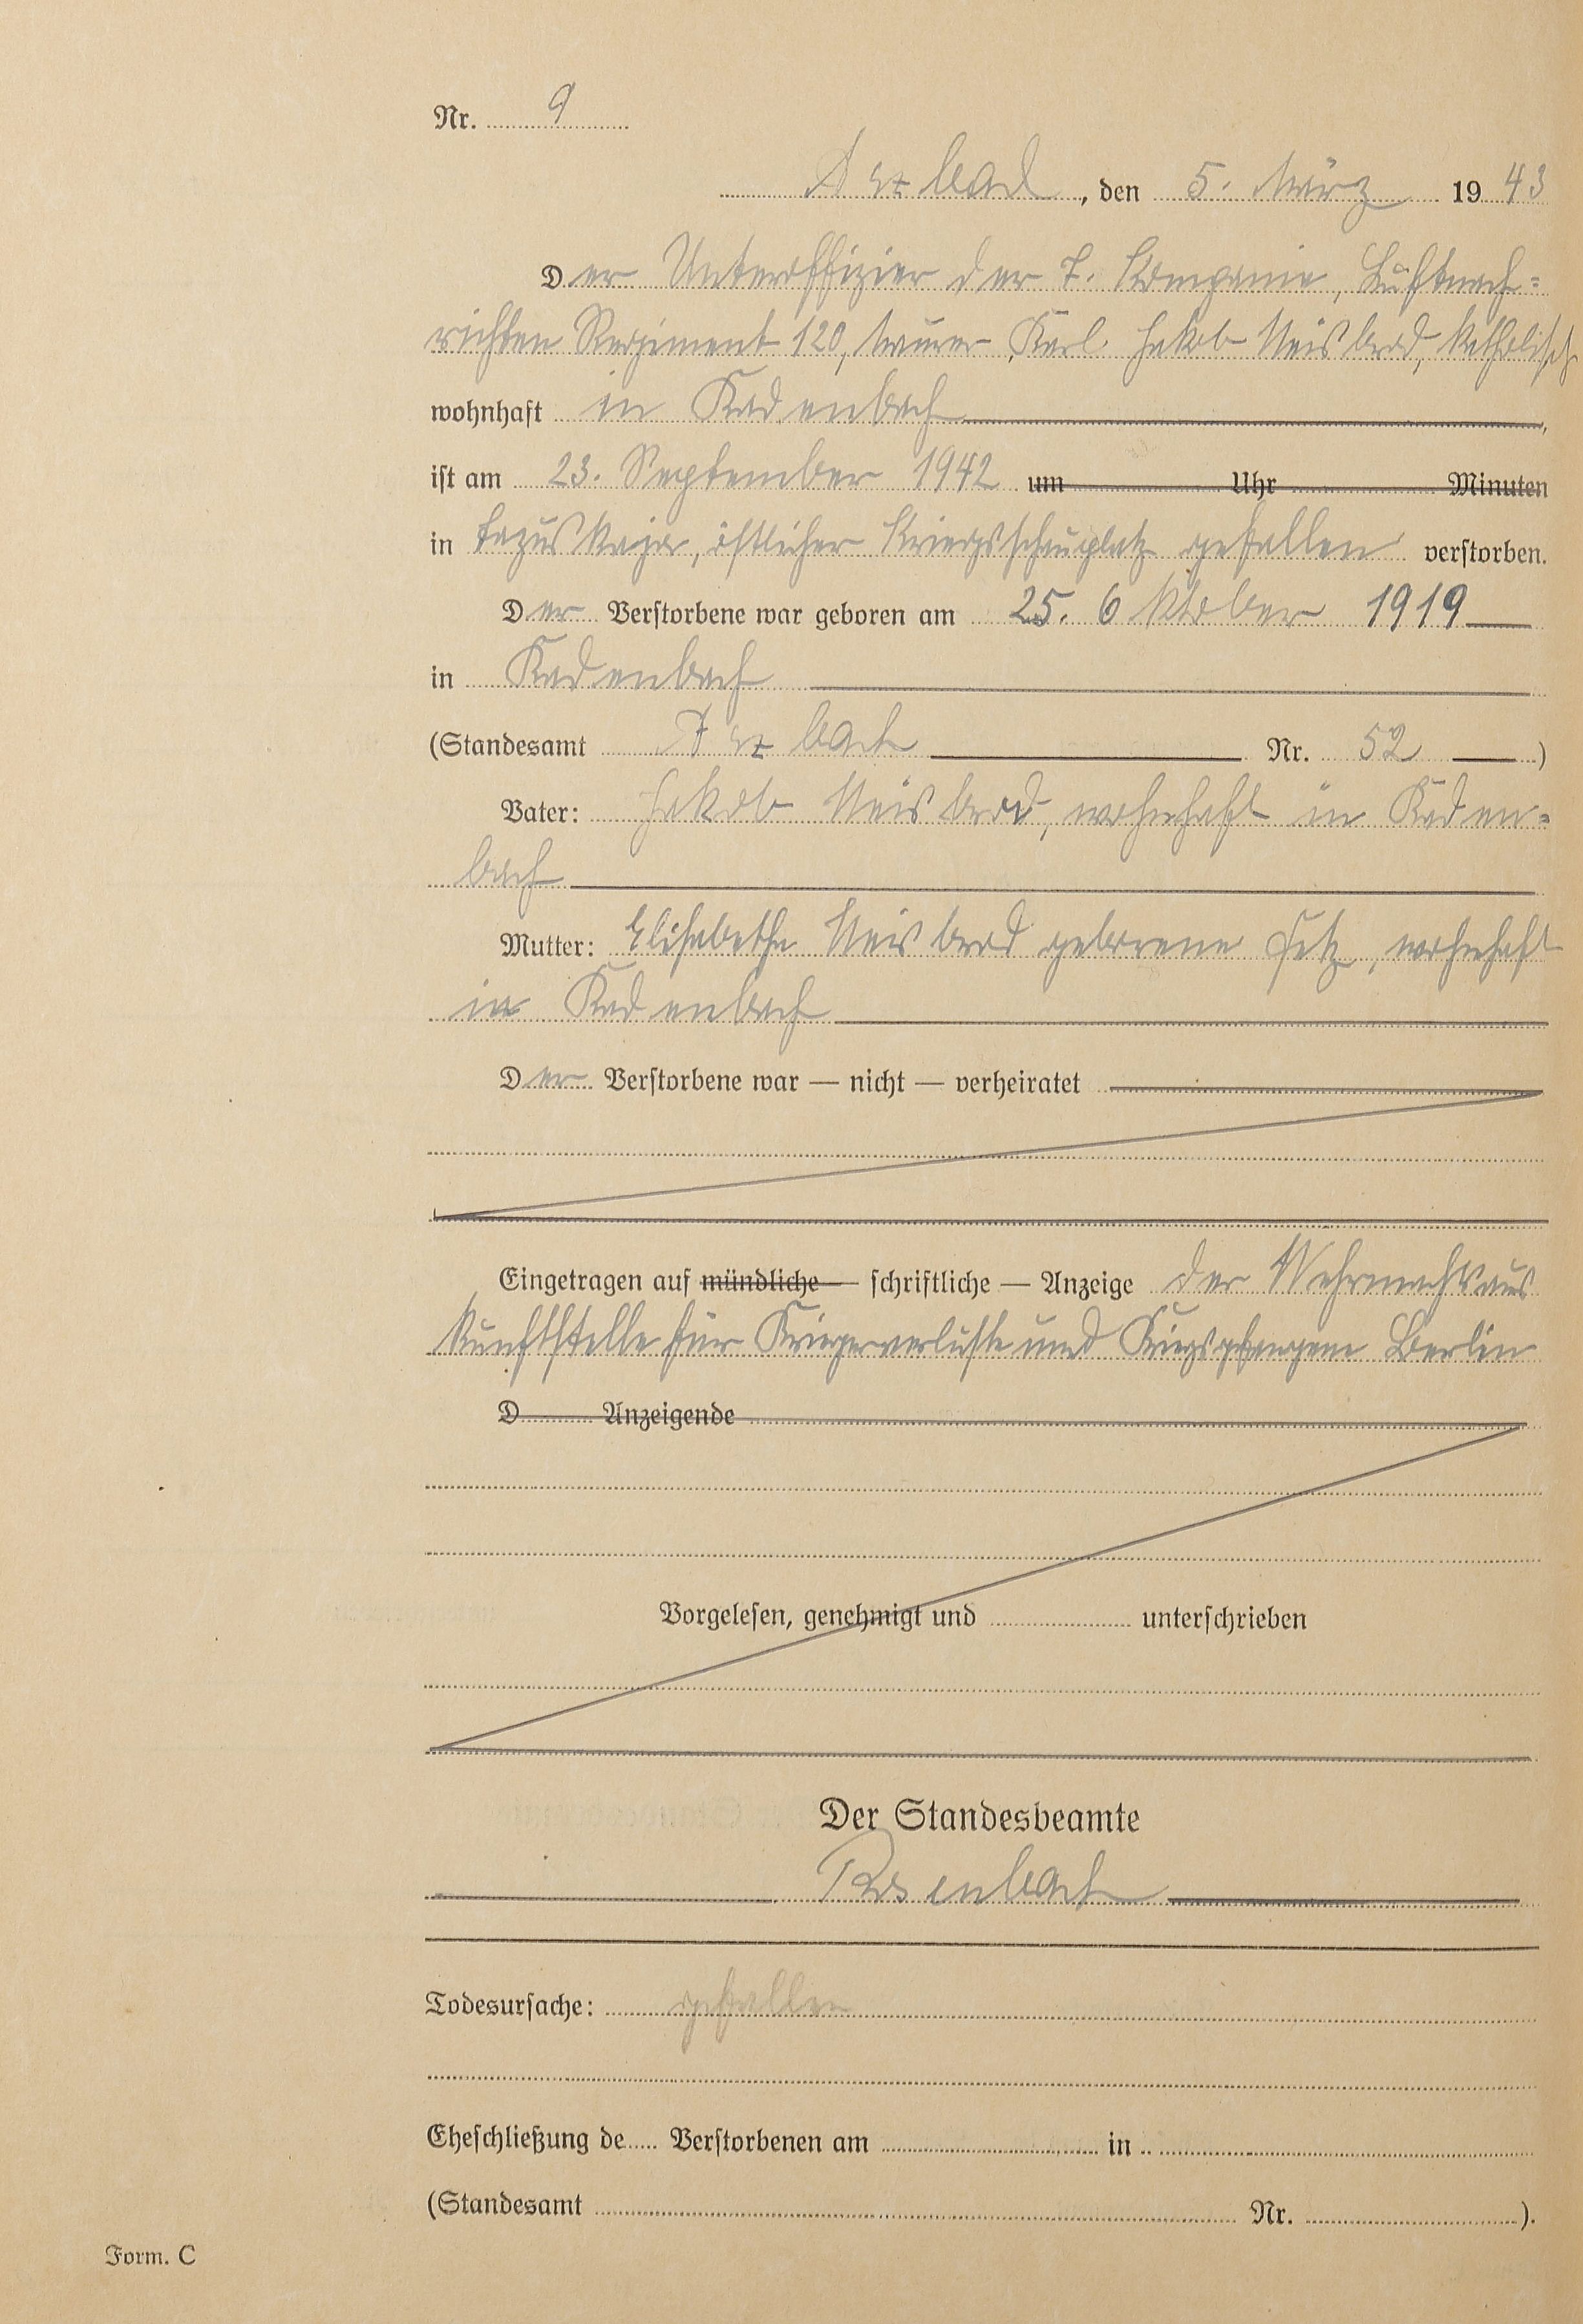 Nr. 9
Arzbach, den 5. März 1943
Der Unteroffizier der 7. Kompanie, Luftnach=
richten Regiment 120, Maurer Karl Jakob Neisbrod, katholisch
wohnhaft in Kadenbach,
ist am 23. September 1942 um Uhr Minuten
in östlicher Kriegsschauplatz gefallen verstorben.
Der Verstorbene war geboren am 25. Oktober 1919
in Kadenbach
(Standesamt Arzbach Nr. 52)
Vater: Jakob Neisbrod, wohnhaft in Kaden=
bach
Mutter: Elisabetha Neisbrod geborene wohnhaft
in Kadenbach
Der Verstorbene war — nicht — verheiratet
Eingetragen auf mündliche — schriftliche — Anzeige der Wehrmachtaus
kunftstelle für Kriegerverluste und Kriegsgefangene Berlin
D Anzeigende
Vorgelesen, genehmigt und unterschrieben
Der Standesbeamte
Rosenbach
Todesursache: gefallen
Eheschließung de Verstorbenen am in
(Standesamt Nr. ).
Form. C